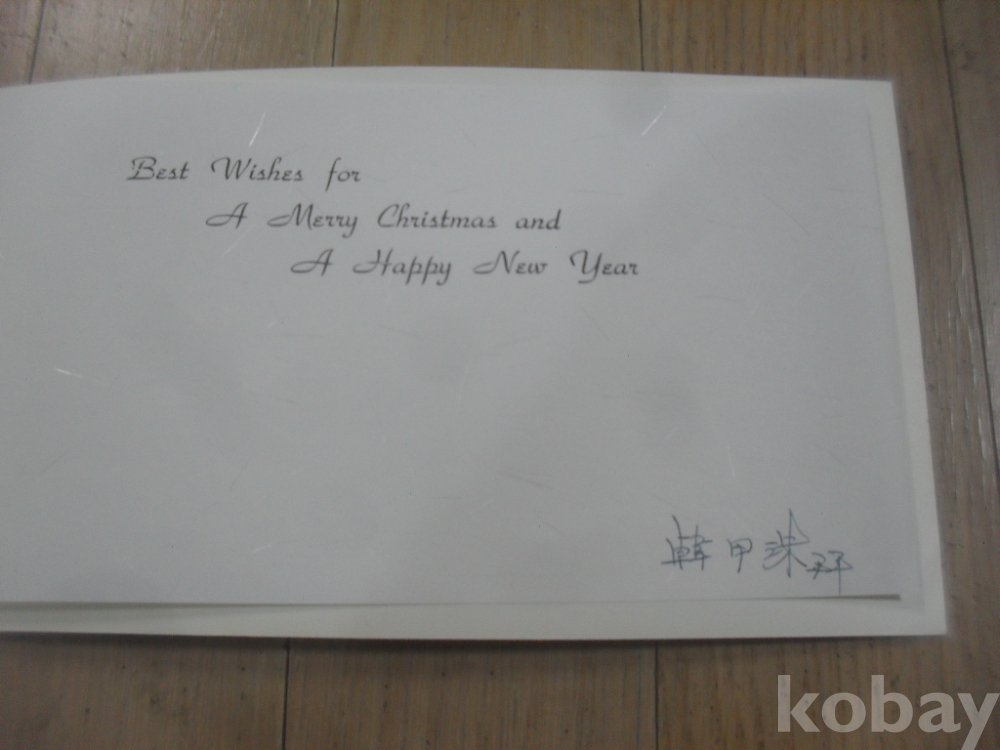 Best Wishes for
A Merry Christmas and
A Happy New Year
韓甲洙 拜
kobay